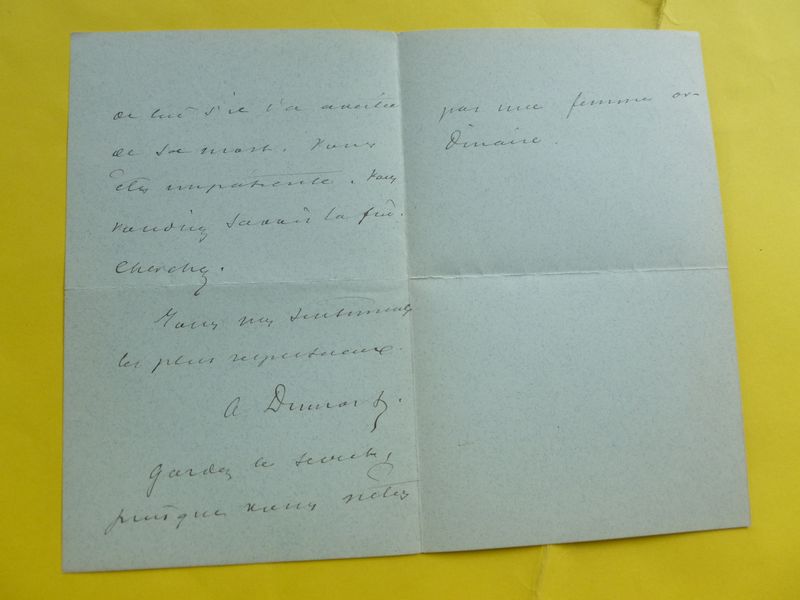 de lui s'il l'a aimée
de sa mort. Vous
êtes impatiente. Vous
voudriez savoir la fin.
Cherchez.
Tous mes sentiments
les plus respectueux.
A Dumas f.
Gardez le secret,
puisque vous n'êtes
pas une femme or-
dinaire.